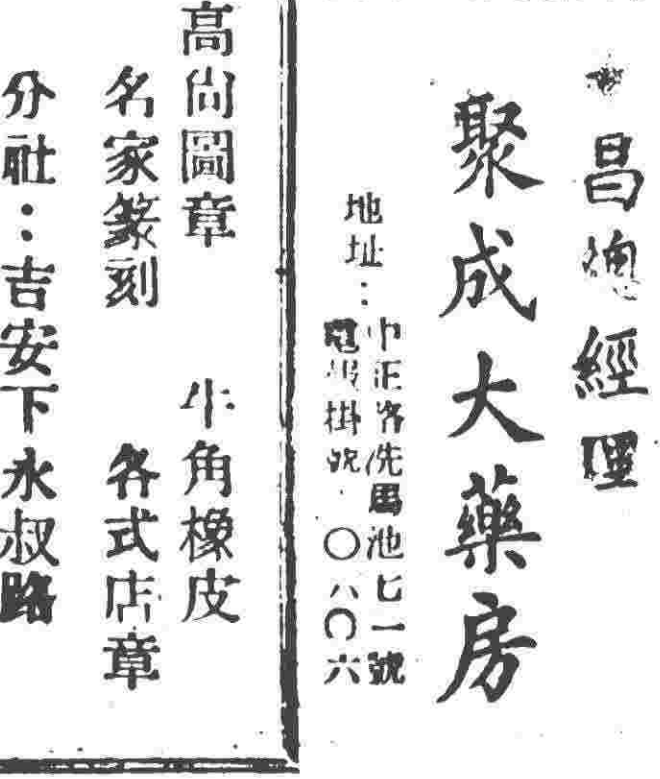 昌總經理
聚成大藥房
地址：中正路洗馬池七一號
電報掛號．〇八〇六
高尚圖章 牛角橡皮
名家篆刻 各式店章
分社：吉安下永叔路